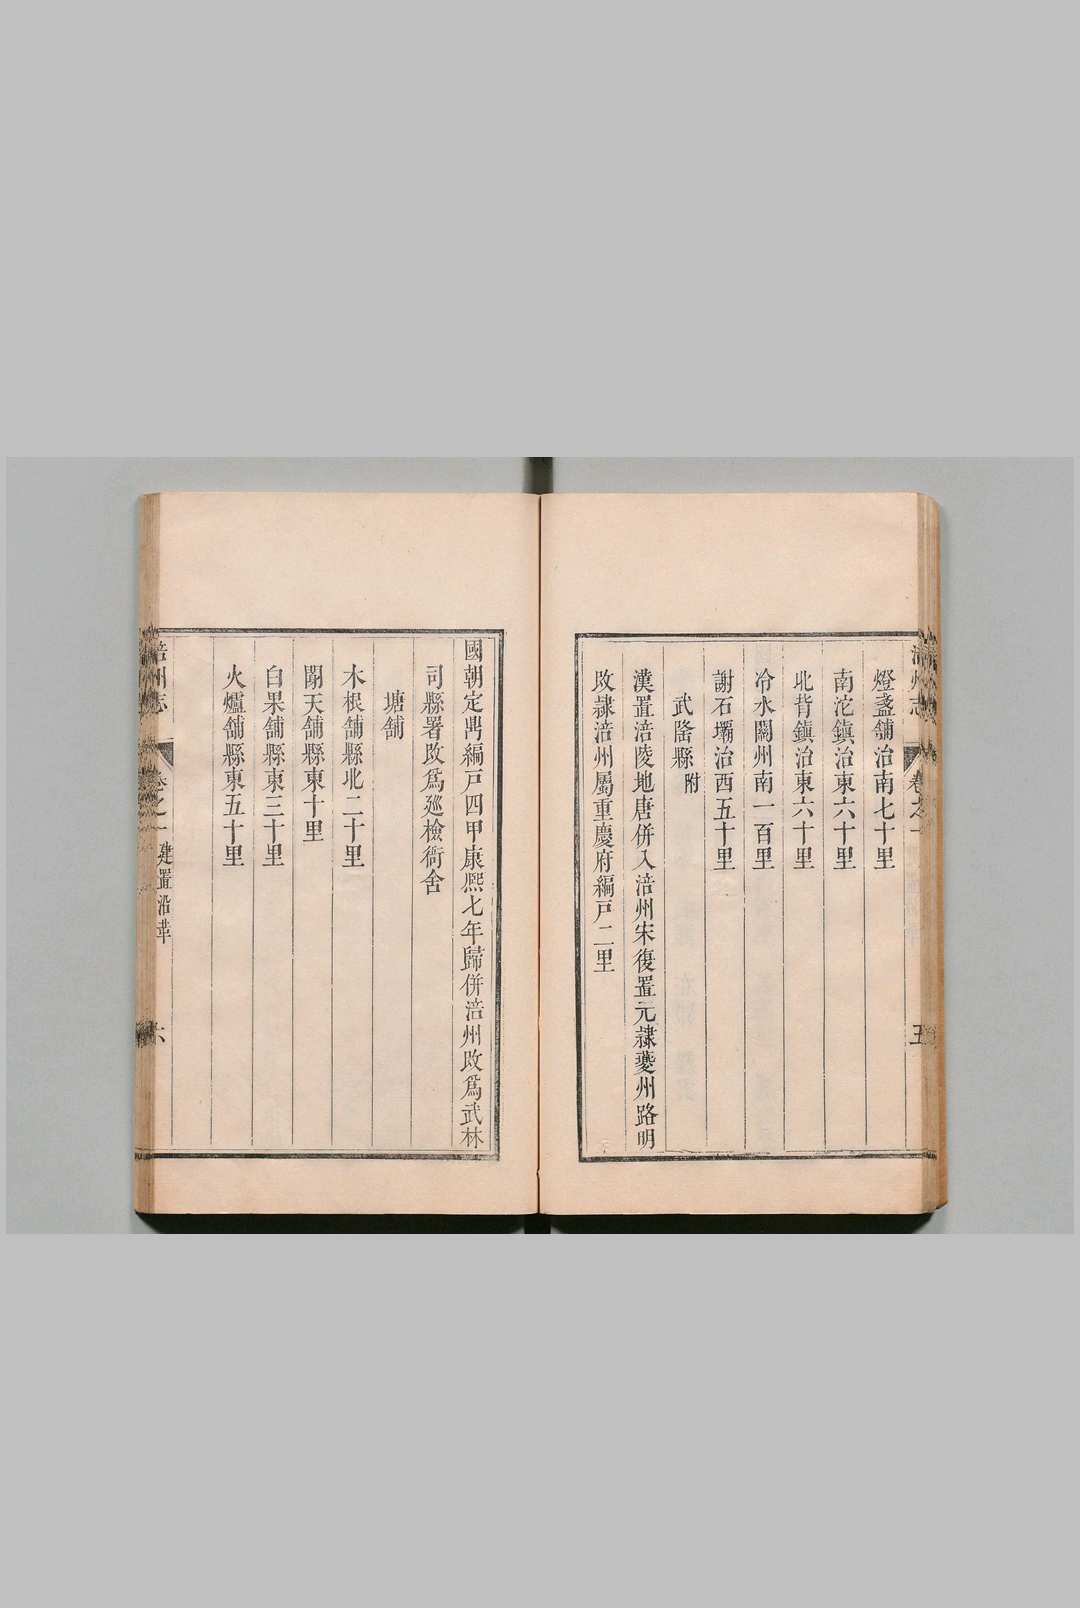 燈盞舖治南七十里
南沱鎮治東六十里
北背鎮治東六十里
冷水關州南一百里
謝石壩治西五十里
武隆縣附
漢置涪陵地唐併入涪州宋復置元隸夔州路明
改隸涪州屬重慶府編戸二里
五
國朝定鼎編戸四甲康熙七年歸併涪州改爲武林
司縣署改爲廵檢衙舍
塘舖
木根舖縣北二十里
關天舖縣東十里
白果舖縣東三十里
火爐舖縣東五十里
涪州志 卷之一 建置沿革 六